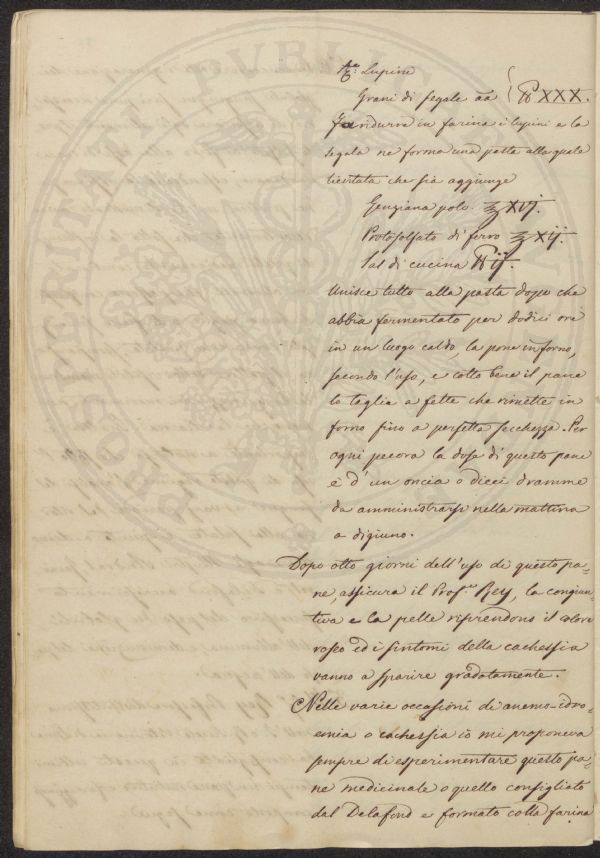 Pe: Lupini
Grani di segale aā } ℔ XXX.
Fa ridurre in farina i lupini e la
segala ne forma una pasta alla quale
lievitata che sia aggiunge
Genziana polv. ℥ XVj.
Protosolfato di ferro ℥ Xij.
Sal di cucina ℔ ij.
Unisce tutto alla pasta dopo che
abbia fermentato per dodici ore
in un luogo caldo, la pone in forno,
secondo l'uso, e cotto bene il pane
lo taglia a fette che rimette in
forno fino a perfetta secchezza. Per
ogni pecora la dose di questo pane
è d'un oncia o dieci dramme
da amministrarsi nella mattina
a digiuno.
Dopo otto giorni dell'uso di questo pa-
ne, assicura il Prof.e Rey, la congiun-
tiva e la pelle riprendono il colore
roseo ed i sintomi della cachessia
vanno a sparire gradatamente.
Nelle varie occasioni di anemo-idro-
emia o cachessia io mi proponeva
sempre di esperimentare questo pa-
ne medicinale o quello consigliato
dal Delafond e formato colla farina
PROSPERITATI PVBLIC